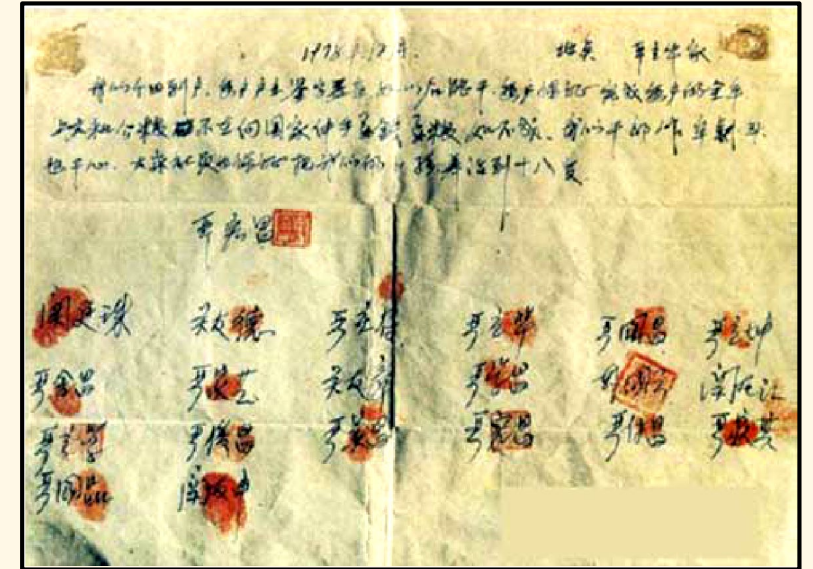 1978.12月. 地点 严立华家
我们分田到户、每户户主签字盖章、如以后能干、每户保证完成每户的全年
上交和公粮 不在向国家伸手要钱要粮 如不成、我们干部作牢刹头
也干心、大家社员也保证把我们的小孩养活到十八岁.
严宏昌
关廷珠 关友德 严立符 严立华 严国昌 严立坤
严金昌 严家芝 关友章 严学昌 韩国云 关友江
严立学 严俊昌 严美昌 严宏昌 严付昌 严家其
严国品 关友申